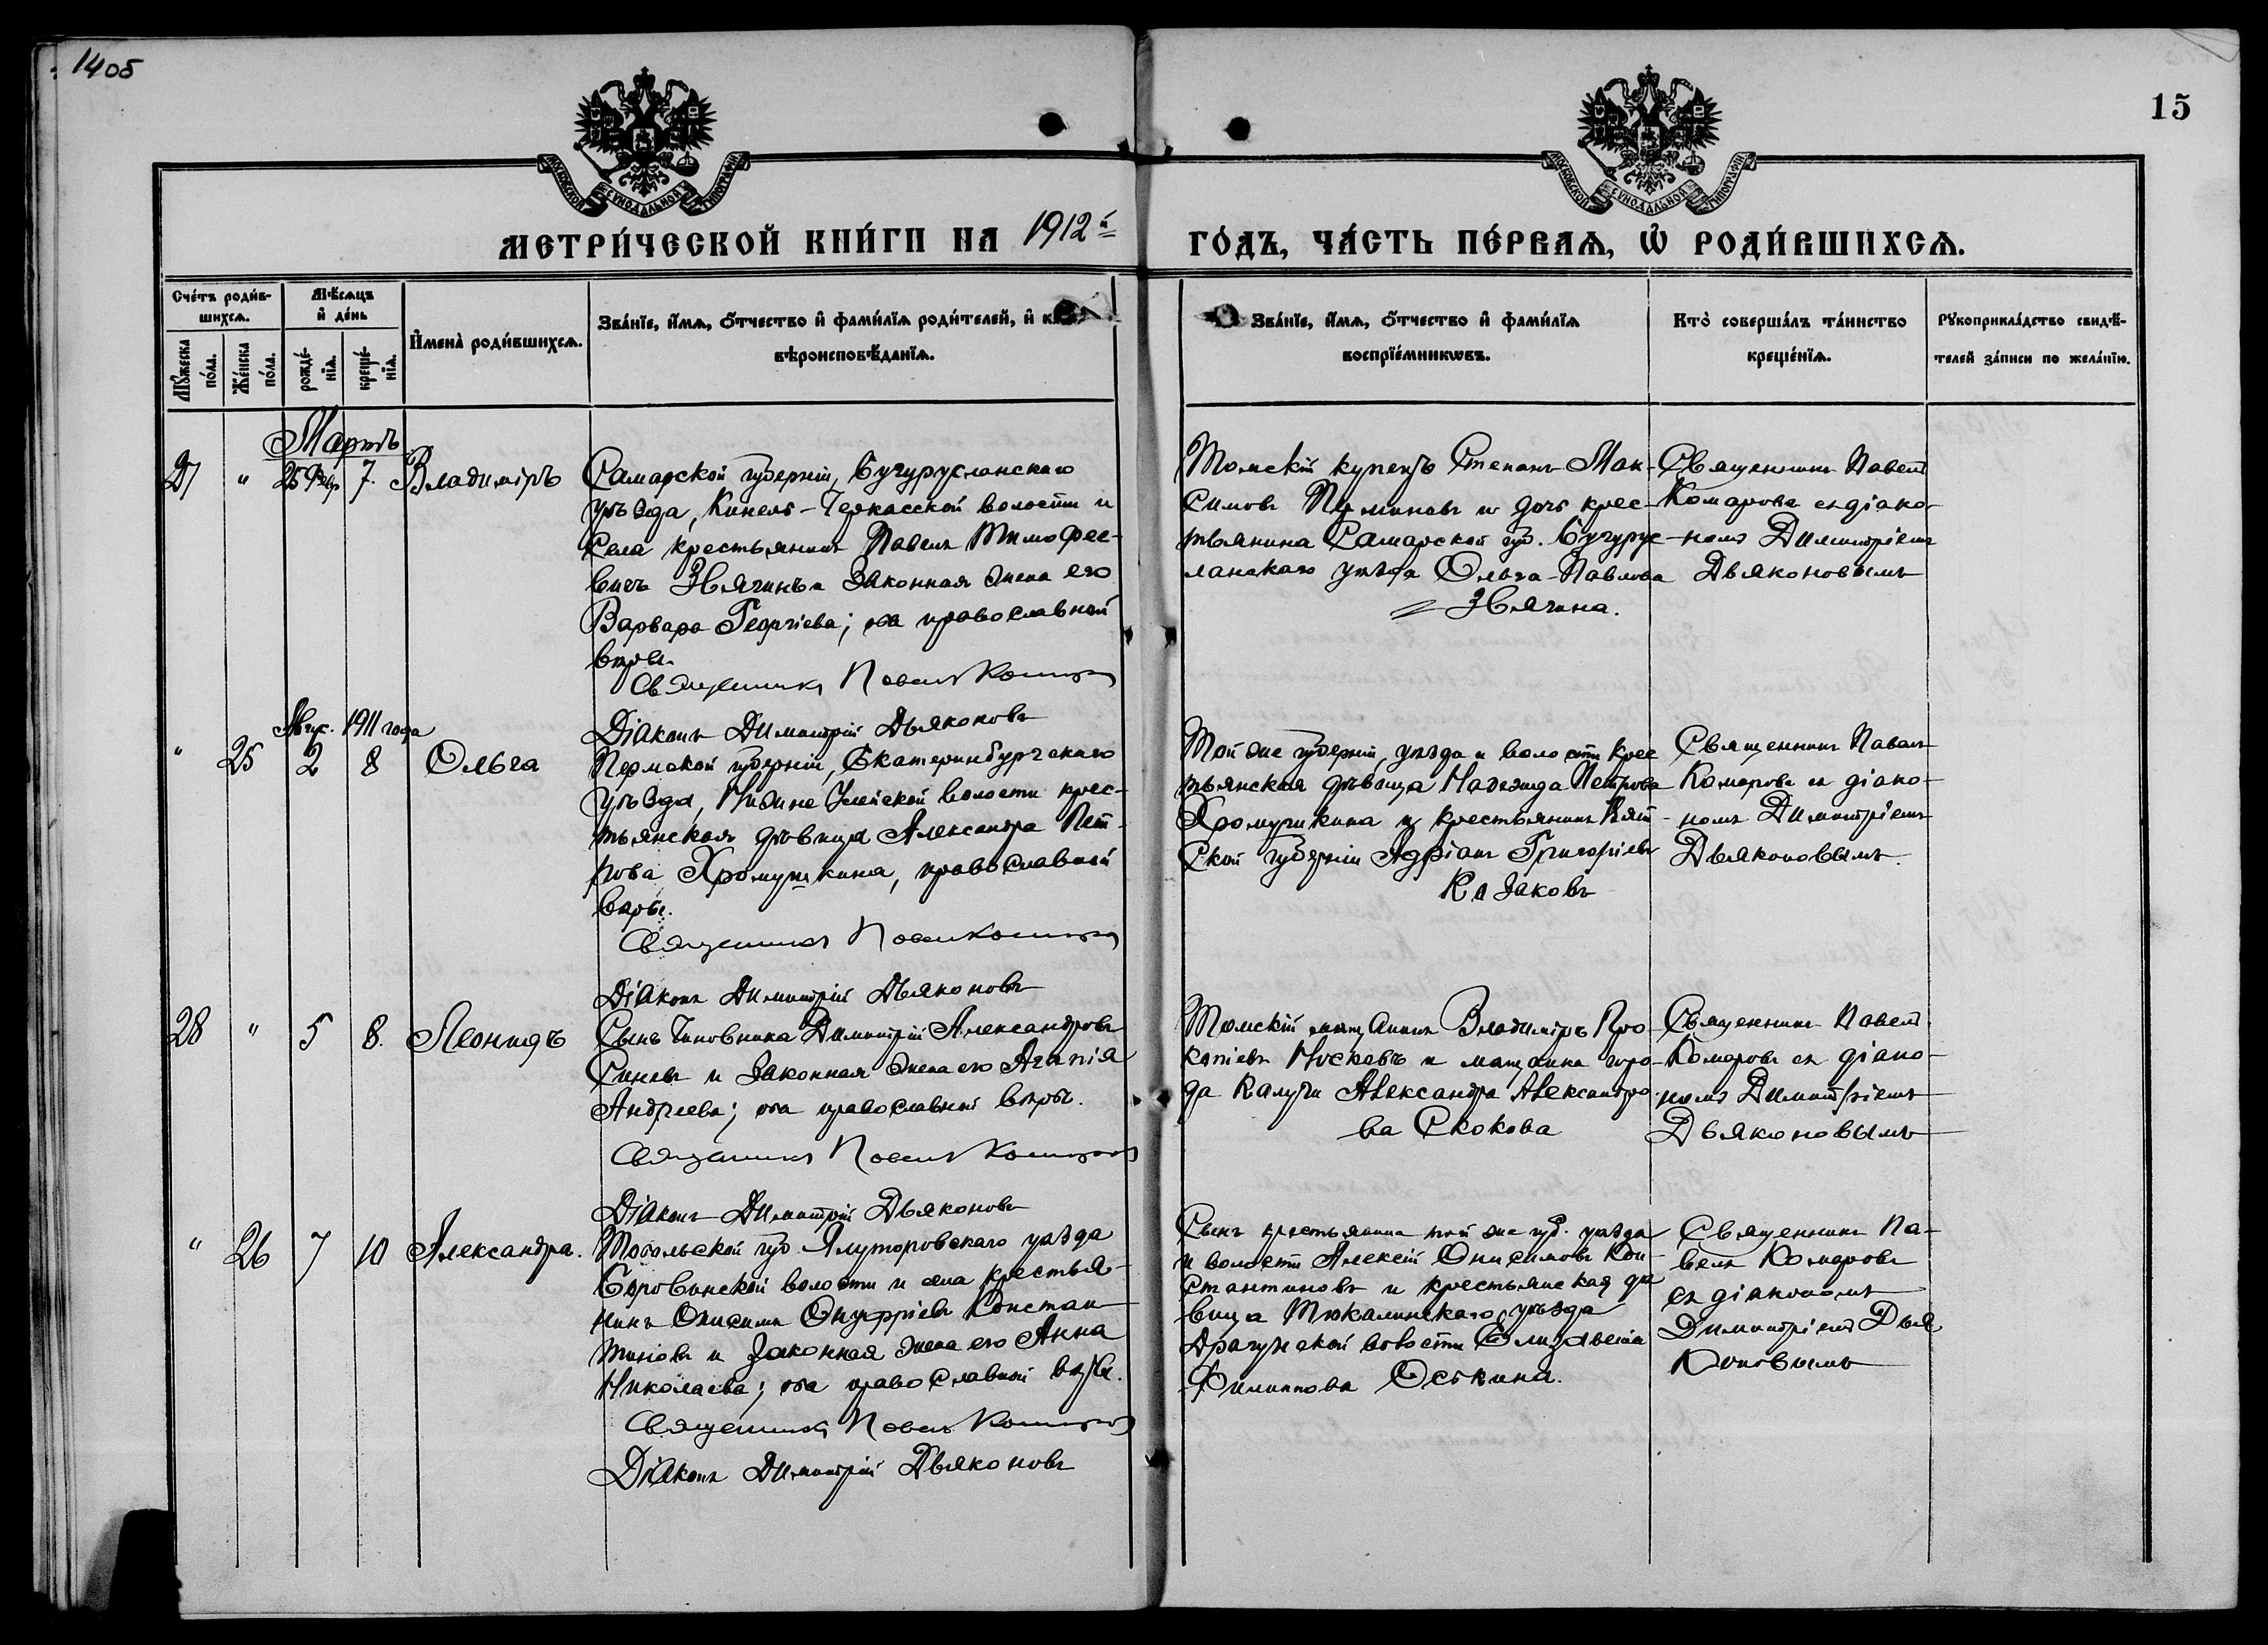 14об
15
МОСКОВСКОЙ СУНОДАЛЬНОЙ ТИПОГРАФІИ
МОСКОВСКОЙ СУНОДАЛЬНОЙ ТИПОГРАФІИ
МЕТРИ́ЧЕСКОЙ КНИ́ГИ НА 1912й ГО́ДЪ, ЧА́СТЬ ПЕ́РВАѦ, Ѡ҆ РОДИ́ВШИХСѦ.
Сче́тъ роди́в-
шихсѧ.
Мѣ́сѧцъ
и҆ де́нь
Мꙋ́жеска
по́ла.
Же́нска
по́ла.
рожде́-
нїѧ.
креще́-
нїѧ.
И҆мена̀ роди́вшихсѧ.
Зва́нїе, и҆́мѧ, ѻ҆́тчество и҆ фами́лїѧ роди́телей, и҆
вѣроисповѣ́данїѧ.
Зва́нїе, и҆́мѧ, ѻ҆́тчество и҆ фами́лїѧ
воспрїе́мникѡвъ.
Кто̀ соверша́лъ та́инство
креще́нїѧ.
Рꙋкоприкла́дство свидѣ́-
телей за́писи по жела́нїю.
Мартъ
27 " 25 Февр 7. Владиміръ
Самарской губерніи, Бугурусланскаго
уѣзда, Кинель-Черкасской волости и
села крестьянинъ Павелъ Тимофее-
вичъ Звягинъ и законная жена его
Варвара Георгіева; оба православной
вѣры.
Священникъ Павелъ Комаровъ
Діаконъ Димитрій Дьяконовъ
Томскій купецъ Степанъ Мак-
симовъ Перминовъ и дочь крес-
тьянина Самарской губ. Бугурус-
ланскаго уѣзда Ольга Павлова
Звягина.
Священникъ Павелъ
Комаровъ съ діако-
номъ Димитріемъ
Дьяконовымъ
Авгус. 1911 года
" 25 2 8 Ольга
Пермской губерніи, Екатеринбургскаго
уѣзда, волости крес-
тьянская дѣвица Александра Пет-
рова Хромушкина, православной
вѣры.
Священникъ Павелъ Комаровъ
Діаконъ Димитрій Дьяконовъ
Той же губерніи, уѣзда и волости крес
тьянская дѣвица Надежда Петрова
Хромушкина и крестьянинъ Вят-
ской губерніи Адріанъ Григорьевъ
Казаковъ
Священникъ Павелъ
Комаровъ съ діако-
номъ Димитріемъ
Дьяконовымъ.
28 " 5 8. Леонидъ
Сынъ Чиновника Димитрій Александровъ
Синевъ и законная жена его Агапія
Андреева; оба православной вѣры.
Священникъ Павелъ Комаровъ
Діаконъ Димитрій Дьяконовъ
Томскій мѣщанинъ Владиміръ Про-
копіевъ Носковъ и мѣщанка горо-
да Калуги Александра Александро-
ва Скокова
Священникъ Павелъ
Комаровъ съ діако-
номъ Димитріемъ
Дьяконовымъ
" 26 7 10 Александра.
Тобольской губ. Ялуторовскаго уѣзда
Боровинской волости и села крестья-
нинъ Онисимъ Онуфріевъ Констан-
тиновъ и законная жена его Анна
Николаева; оба православной вѣры.
Священникъ Павелъ Комаровъ
Діаконъ Димитрій Дьяконовъ
Сынъ крестьянина той же губ. уѣзда
и волости Алексій Онисимовъ Кон-
стантиновъ и крестьянская дѣ
вица Тюкалинскаго уѣзда
волости Елизавета
Филиппова Оськина.
Священникъ Па-
велъ Комаровъ
съ діакономъ
Димитріемъ Дья
коновымъ